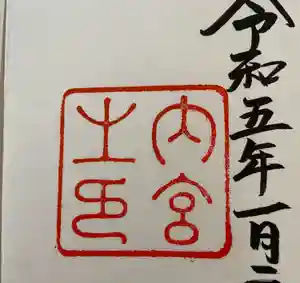 令和五年一月二
内宮
之印